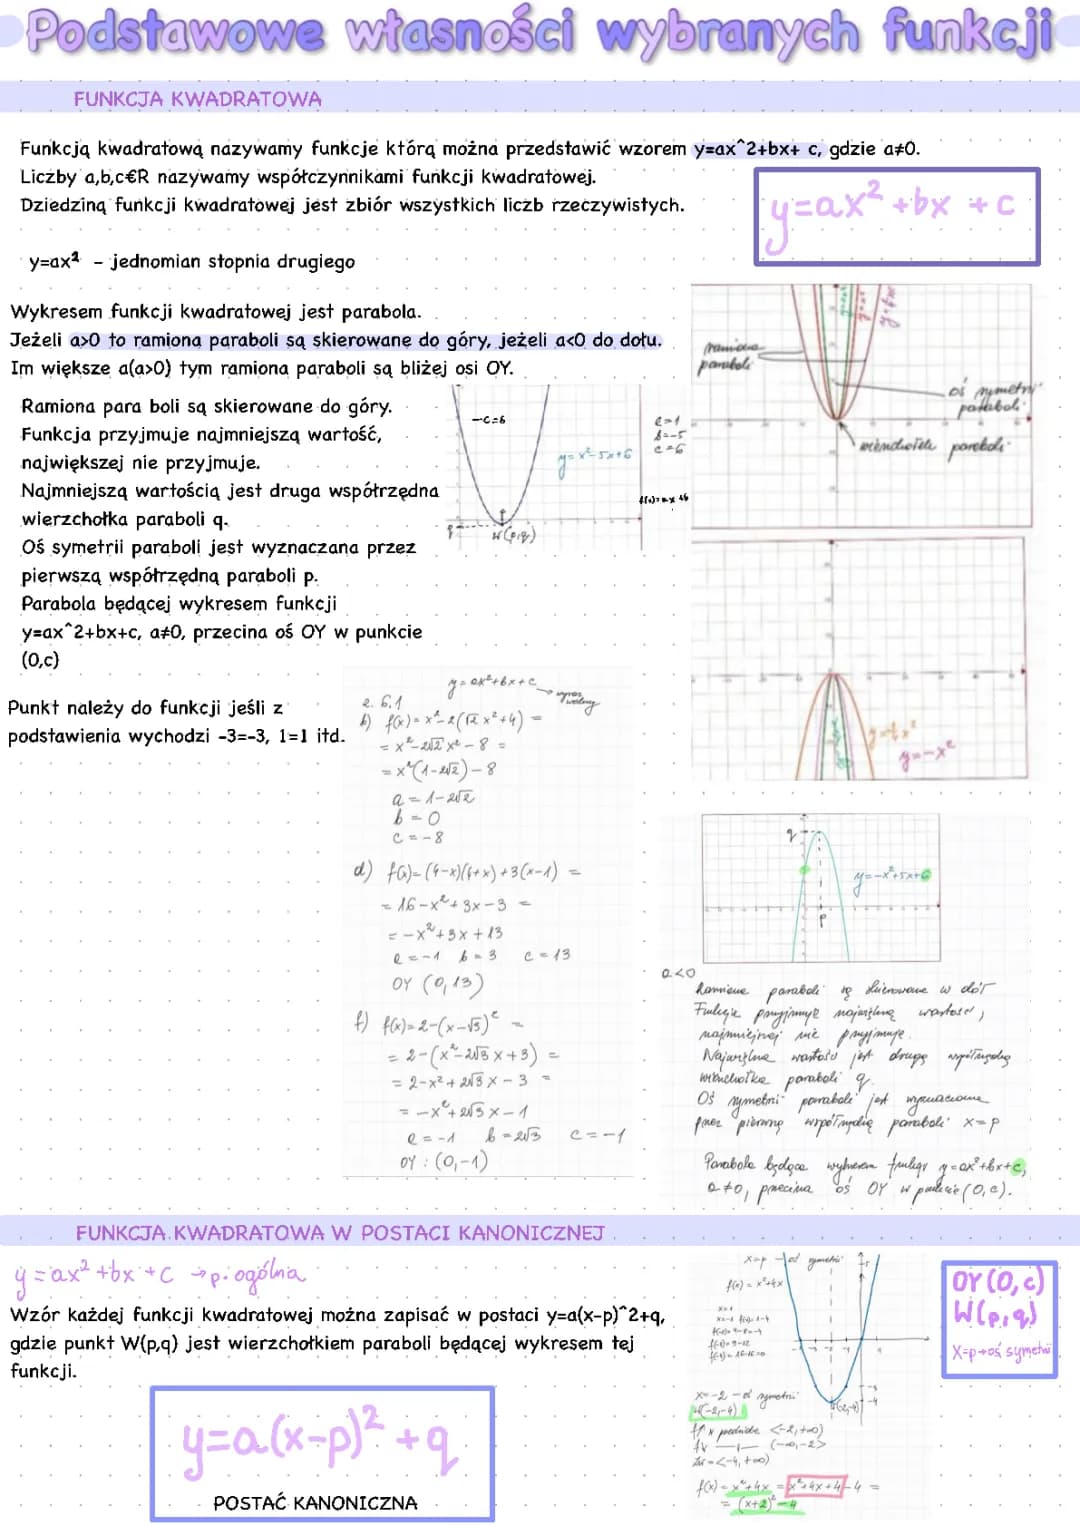 Podstawowe własności wybranych funkcji
FUNKCJA KWADRATOWA
Funkcją kwadratową nazywamy funkcje którą można przedstawić wzorem y=ax^2+bx+ c, gdzie a≠0.
Liczby a,b,c€R nazywamy współczynnikami funkcji kwadratowej.
Dziedziną funkcji kwadratowej jest zbiór wszystkich liczb rzeczywistych.
y=ax²+bx+c
y=ax² - jednomian stopnia drugiego
Wykresem funkcji kwadratowej jest parabola.
Jeżeli a>0 to ramiona paraboli są skierowane do góry, jeżeli a<0 do dołu.
Im większe a(a>0) tym ramiona paraboli są bliżej osi OY.
ramiona
paraboli
oś symetrii
paraboli
wierzchołek paraboli
Ramiona para boli są skierowane do góry.
Funkcja przyjmuje najmniejszą wartość,
największej nie przyjmuje.
Najmniejszą wartością jest druga współrzędna
wierzchołka paraboli q.
Oś symetrii paraboli jest wyznaczana przez
pierwszą współrzędną paraboli p.
Parabola będącej wykresem funkcji
y=ax^2+bx+c, a≠0, przecina oś OY w punkcie
(0,c)
-c=6
y=x²-5x+6
a=1
b=-5
c=6
W(p,q)
Punkt należy do funkcji jeśli z
podstawienia wychodzi -3=-3, 1=1 itd.
y=ax²+bx+c
wyraz
wolny
2. 6.1
b) f(x)=x²-2(√2x²+4) =
=x²-2√2x²-8 =
=x²(1-2√2)-8
a=1-2√2
b=0
c=-8
d) f(x)=(4-x)(4+x)+3(x-1) =
=16-x²+3x-3 =
=-x²+3x+13
a=-1 b=3 c=13
OY (0,13)
f) f(x)=2-(x-√3)² =
=2-(x²-2√3x+3) =
=2-x²+2√3x-3 =
=-x²+2√3x-1
a=-1 b=2√3 c=-1
OY: (0,-1)
y=-x²
q
y=-x²+5x+6
p
a<0
Ramiona paraboli są skierowane w dół
Funkcja przyjmuje największą wartość,
najmniejszej nie przyjmuje.
Największa wartość jest drugą współrzędną
wierzchołka paraboli q.
Oś symetrii paraboli jest wyznaczona
przez pierwszą współrzędną paraboli x=p
Parabola będąca wykresem funkcji y=ax²+bx+c,
a≠0, przecina oś OY w punkcie (0,c).
FUNKCJA KWADRATOWA W POSTACI KANONICZNEJ
y=ax²+bx+c →p. ogólna
Wzór każdej funkcji kwadratowej można zapisać w postaci y=a(x-p)^2+q,
gdzie punkt W(p,q) jest wierzchołkiem paraboli będącej wykresem tej
funkcji.
y=a(x-p)²+q
POSTAĆ KANONICZNA
x=p - oś symetrii
f(x)=x²+4x
x=-2 - oś symetrii
W(-2,-4)
f↗ w przedziale <-2,+∞)
f↘ —||— (-∞,-2>
Zw=<-4,+∞)
f(x)=x²+4x=x²+4x+4-4=
=(x+2)²-4
OY(0,c)
W(p,q)
X=p→oś symetrii